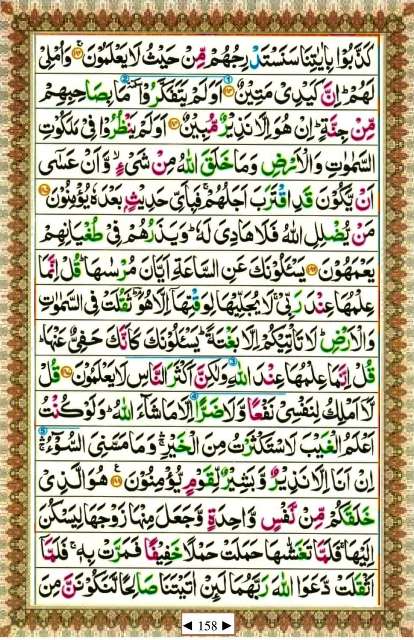 كَذَّبُوۡا بِاٰيٰتِنَا سَنَسۡتَدۡرِجُهُمۡ مِّنۡ حَيۡثُ لَا يَعۡلَمُوۡنَ ۞ وَاُمۡلِىۡ
لَهُمۡ‌ ؕ اِنَّ كَيۡدِىۡ مَتِيۡنٌ ۞ اَوَلَمۡ يَتَفَكَّرُوۡا‌ مَا بِصَاحِبِهِمۡ
مِّنۡ جِنَّةٍ‌ ؕ اِنۡ هُوَ اِلَّا نَذِيۡرٌ مُّبِيۡنٌ ۞ اَوَلَمۡ يَنۡظُرُوۡا فِىۡ مَلَكُوۡتِ
السَّمٰوٰتِ وَالۡاَرۡضِ وَمَا خَلَقَ اللّٰهُ مِنۡ شَىۡءٍ ۙ وَّاَنۡ عَسٰٓى
اَنۡ يَّكُوۡنَ قَدِ اقۡتَرَبَ اَجَلُهُمۡ‌ ۚ فَبِاَىِّ حَدِيۡثٍۢ بَعۡدَهٗ يُؤۡمِنُوۡنَ ۞
مَنۡ يُّضۡلِلِ اللّٰهُ فَلَا هَادِىَ لَهٗ‌ ؕ وَيَذَرُهُمۡ فِىۡ طُغۡيَانِهِمۡ
يَعۡمَهُوۡنَ ۞ يَسۡـَٔلُوۡنَكَ عَنِ السَّاعَةِ اَيَّانَ مُرۡسٰٮهَا‌ ؕ قُلۡ اِنَّمَا
عِلۡمُهَا عِنۡدَ رَبِّىۡ‌ ۚ لَا يُجَلِّيۡهَا لِوَقۡتِهَاۤ اِلَّا هُوَ‌ ؔ ثَقُلَتۡ فِى السَّمٰوٰتِ
وَالۡاَرۡضِ‌ ؕ لَا تَاۡتِيۡكُمۡ اِلَّا بَغۡتَةً‌ ؕ يَسۡـَٔلُوۡنَكَ كَاَنَّكَ حَفِىٌّ عَنۡهَا‌ ؕ
قُلۡ اِنَّمَا عِلۡمُهَا عِنۡدَ اللّٰهِ وَلٰـكِنَّ اَكۡثَرَ النَّاسِ لَا يَعۡلَمُوۡنَ ۞ قُلْ
لَّاۤ اَمۡلِكُ لِنَفۡسِىۡ نَفۡعًا وَّلَا ضَرًّا اِلَّا مَا شَآءَ اللّٰهُ‌ ؕ وَلَوۡ كُنۡتُ
اَعۡلَمُ الۡغَيۡبَ لَاسۡتَكۡثَرۡتُ مِنَ الۡخَيۡرِ ۛۖ وَمَا مَسَّنِىَ السُّۤوۡءُ‌ ۛۚ
اِنۡ اَنَا اِلَّا نَذِيۡرٌ وَّبَشِيۡرٌ لِّقَوۡمٍ يُّؤۡمِنُوۡنَ ۞ هُوَ الَّذِىۡ
خَلَقَكُمۡ مِّنۡ نَّفۡسٍ وَّاحِدَةٍ وَّجَعَلَ مِنۡهَا زَوۡجَهَا لِيَسۡكُنَ
اِلَيۡهَا‌ ۚ فَلَمَّا تَغَشّٰٮهَا حَمَلَتۡ حَمۡلًا خَفِيۡفًا فَمَرَّتۡ بِهٖ‌ ۚ فَلَمَّاۤ
اَثۡقَلَتۡ دَّعَوَا اللّٰهَ رَبَّهُمَا لَٮِٕنۡ اٰتَيۡتَـنَا صَالِحًا لَّـنَكُوۡنَنَّ مِنَ
◄ 158 ►